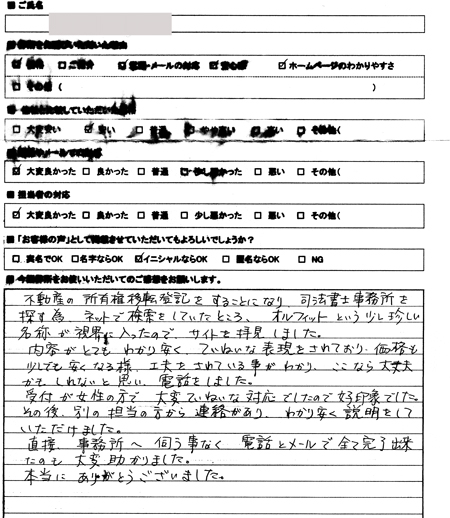 ■ ご氏名
☑ 価格 □ ご紹介 ☑ 電話・メールの対応 ☑ 安心感 ☑ ホームページのわかりやすさ
□ その他 ( )
□ 大変安い ☑ 安い □ 普通 □ やや高い □ 高い □ その他(
☑ 大変良かった □ 良かった □ 普通 □ 少し悪かった □ 悪い □ その他(
■ 担当者の対応
☑ 大変良かった □ 良かった □ 普通 □ 少し悪かった □ 悪い □ その他(
■ 「お客様の声」として掲載させていただいてもよろしいでしょうか?
□ 実名でOK □ 名字ならOK ☑ イニシャルならOK □ 匿名ならOK □ NG
不動産の所有権移転登記をすることになり、司法書士事務所を
探す為、ネットで検索をしていたところ、オルフィットという少し珍しい
名称が視界に入ったので、サイトを拝見しました。
内容がとてもわかり安く、ていねいな表現をされており、価格も
少しでも安くなる様、工夫をされている事がわかり、ここなら大丈夫
かもしれないと思い、電話をしました。
受付が女性の方で大変ていねいな対応でしたので好印象でした。
その後、別の担当の方から連絡があり、わかり安く説明をして
いただけました。
直接、事務所へ伺う事なく、電話とメールで全て完了出来
たのも大変助かりました。
本当にありがとうございました。